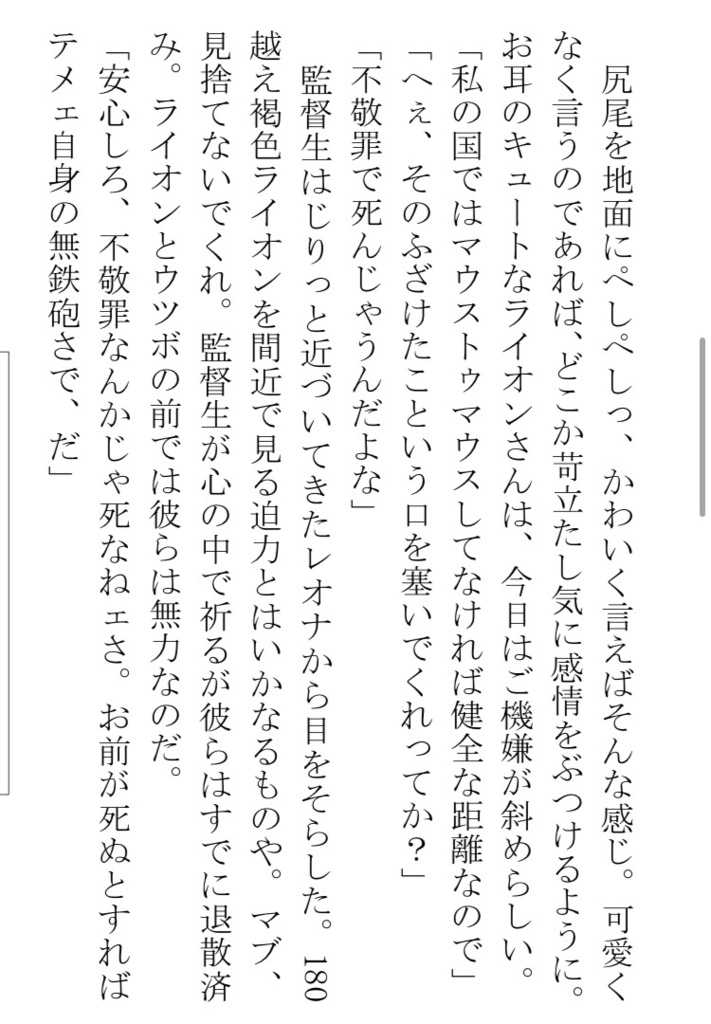 尻尾を地面にぺしぺしっ、かわいく言えばそんな感じ。可愛く
なく言うのであれば、どこか苛立たし気に感情をぶつけるように。
お耳のキュートなライオンさんは、今日はご機嫌が斜めらしい。
「私の国ではマウストゥマウスしてなければ健全な距離なので」
「へぇ、そのふざけたこという口を塞いでくれってか？」
「不敬罪で死んじゃうんだよな」
監督生はじりっと近づいてきたレオナから目をそらした。180
越え褐色ライオンを間近で見る迫力とはいかなるものや。マブ、
見捨てないでくれ。監督生が心の中で祈るが彼らはすでに退散済
み。ライオンとウツボの前では彼らは無力なのだ。
「安心しろ、不敬罪なんかじゃ死なねェさ。お前が死ぬとすれば
テメェ自身の無鉄砲さで、だ」